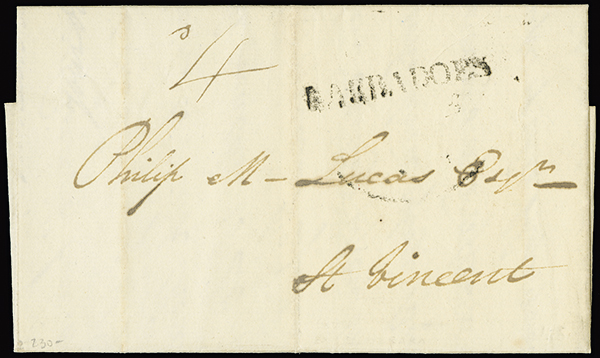 4
BARBADOES
Philip M – Lucas Esqr
St Vincent
230-